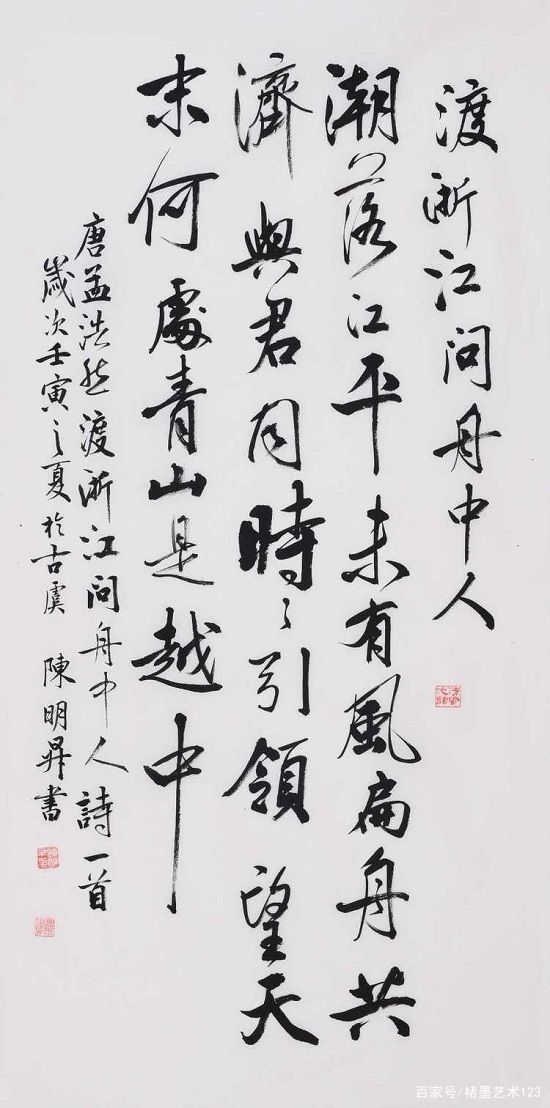 渡浙江问舟中人
潮落江平未有風扁舟共
濟與君同時〻引領望天
末何處青山是越中
唐孟浩然渡浙江问舟中人詩一首
歲次壬寅之夏於古虞 陳明昇書
百家号/楮墨艺术123